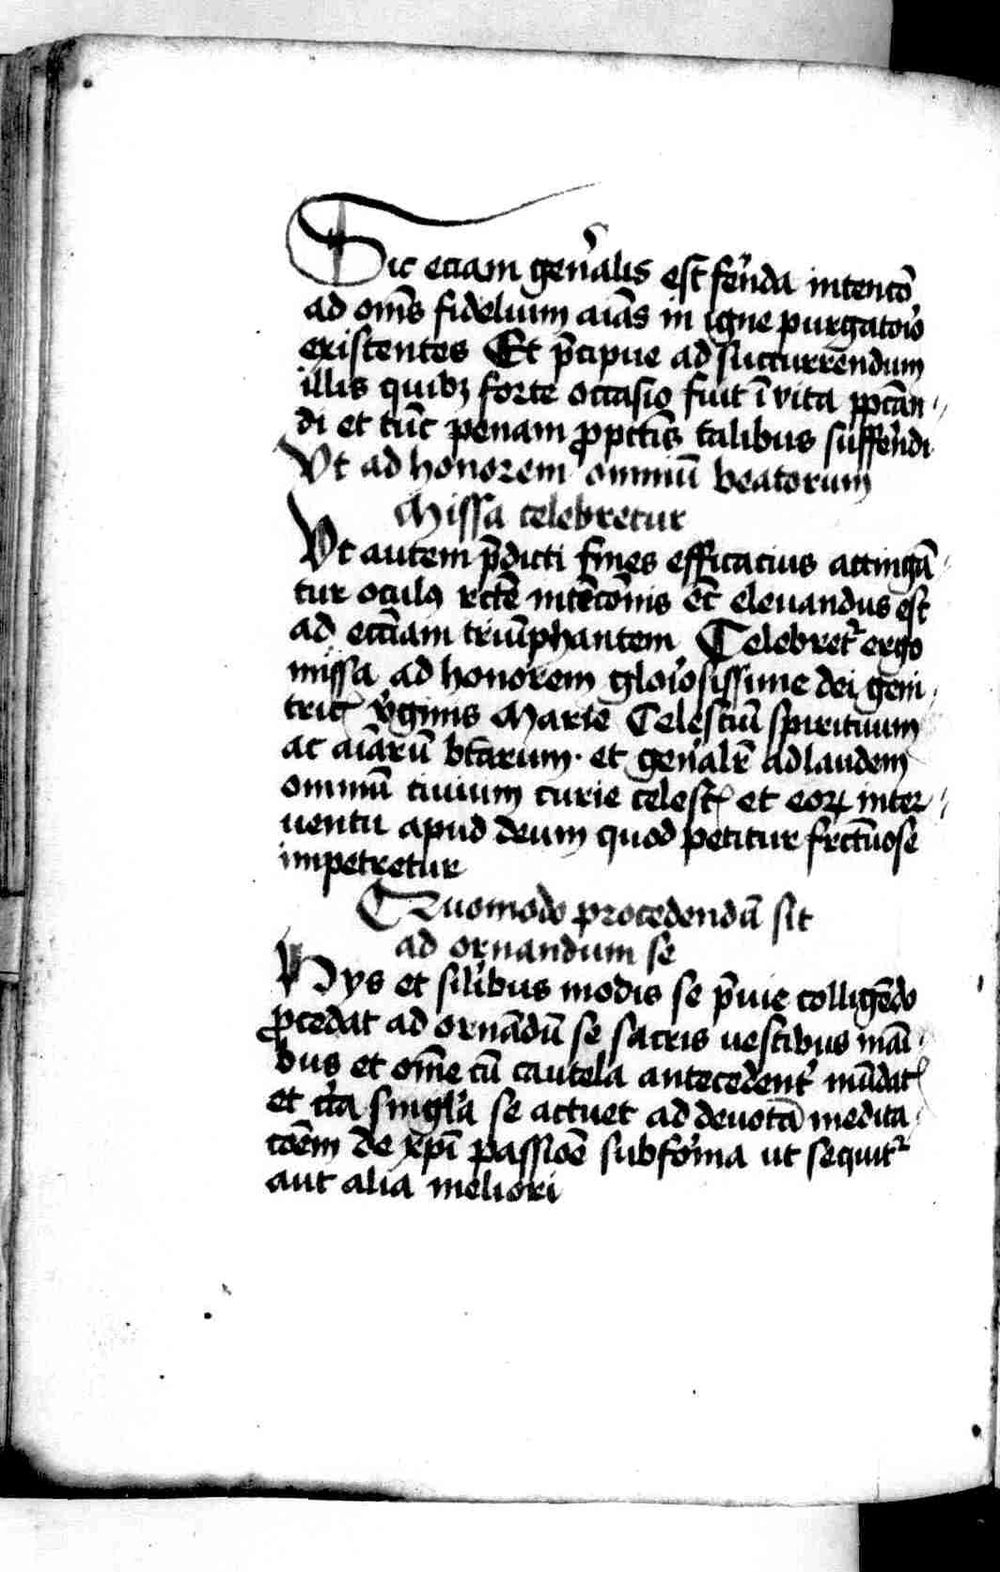 Sic eciam gen̉alis est fer̉nda intencō
ad om̄s fidelium aīas in igne purgator̉o
existentes Et p̄cipue ad succurrendum
illis quibꝫ forte occasio fuit ī vita pp̄cān
di et tūc penam ꝓ pctīs talibus suffer̉ndi
Vt ad honorem omniū beatorum
Missa celebretur
Vt autem p̄dicti fines efficacius attingā
tur oculꝰ rcte̅ inte̅cōnis ec̅ eleuandus est
ad ecc̄iam triūphantem Celebret᷑ ergo
missa ad honorem glor̉osissime dei geni
tric̄ v̉ginis Marie Celestiū spirituum
ac aīarū bt̄arum · et gen̉alr̄ ad laudem
omniū ciuium curie celest̄ et eoꝝ inter
uentu apud deum quod petitur frc̄tuose
impetretur
Quomodo procedendū sit
ad ornandum se
Hys et sil̉ibus modis se p̄uie colligēdo
ꝓcedat ad ornādū se sacris vestibus māi
bus et om̄e cū cautela antecedent̉ mūdat̄
et cir̉ca singl̉a se actuet ad deuotā medita
cōem de xp̄i passiōe sub for̉ma ut sequit᷑
aut alia meliori